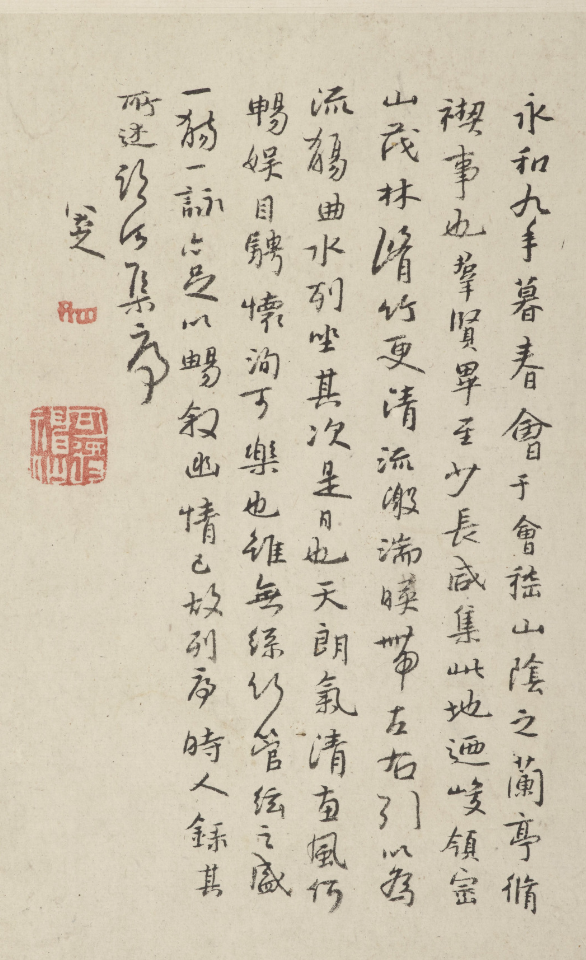 永和九年暮春會于會稽山陰之蘭亭脩
禊事也羣賢畢至少長咸集此地迺峻領崇
山茂林脩竹更清流激湍暎帶左右引以為
流觴曲水列坐其次是日也天朗氣清惠風和
暢娛目騁懷洵可樂也雖無絲竹管絃之盛
一觴一詠亦足以暢叙幽情已故列序時人錄其
所述臨河集序
八大山人
可得神仙